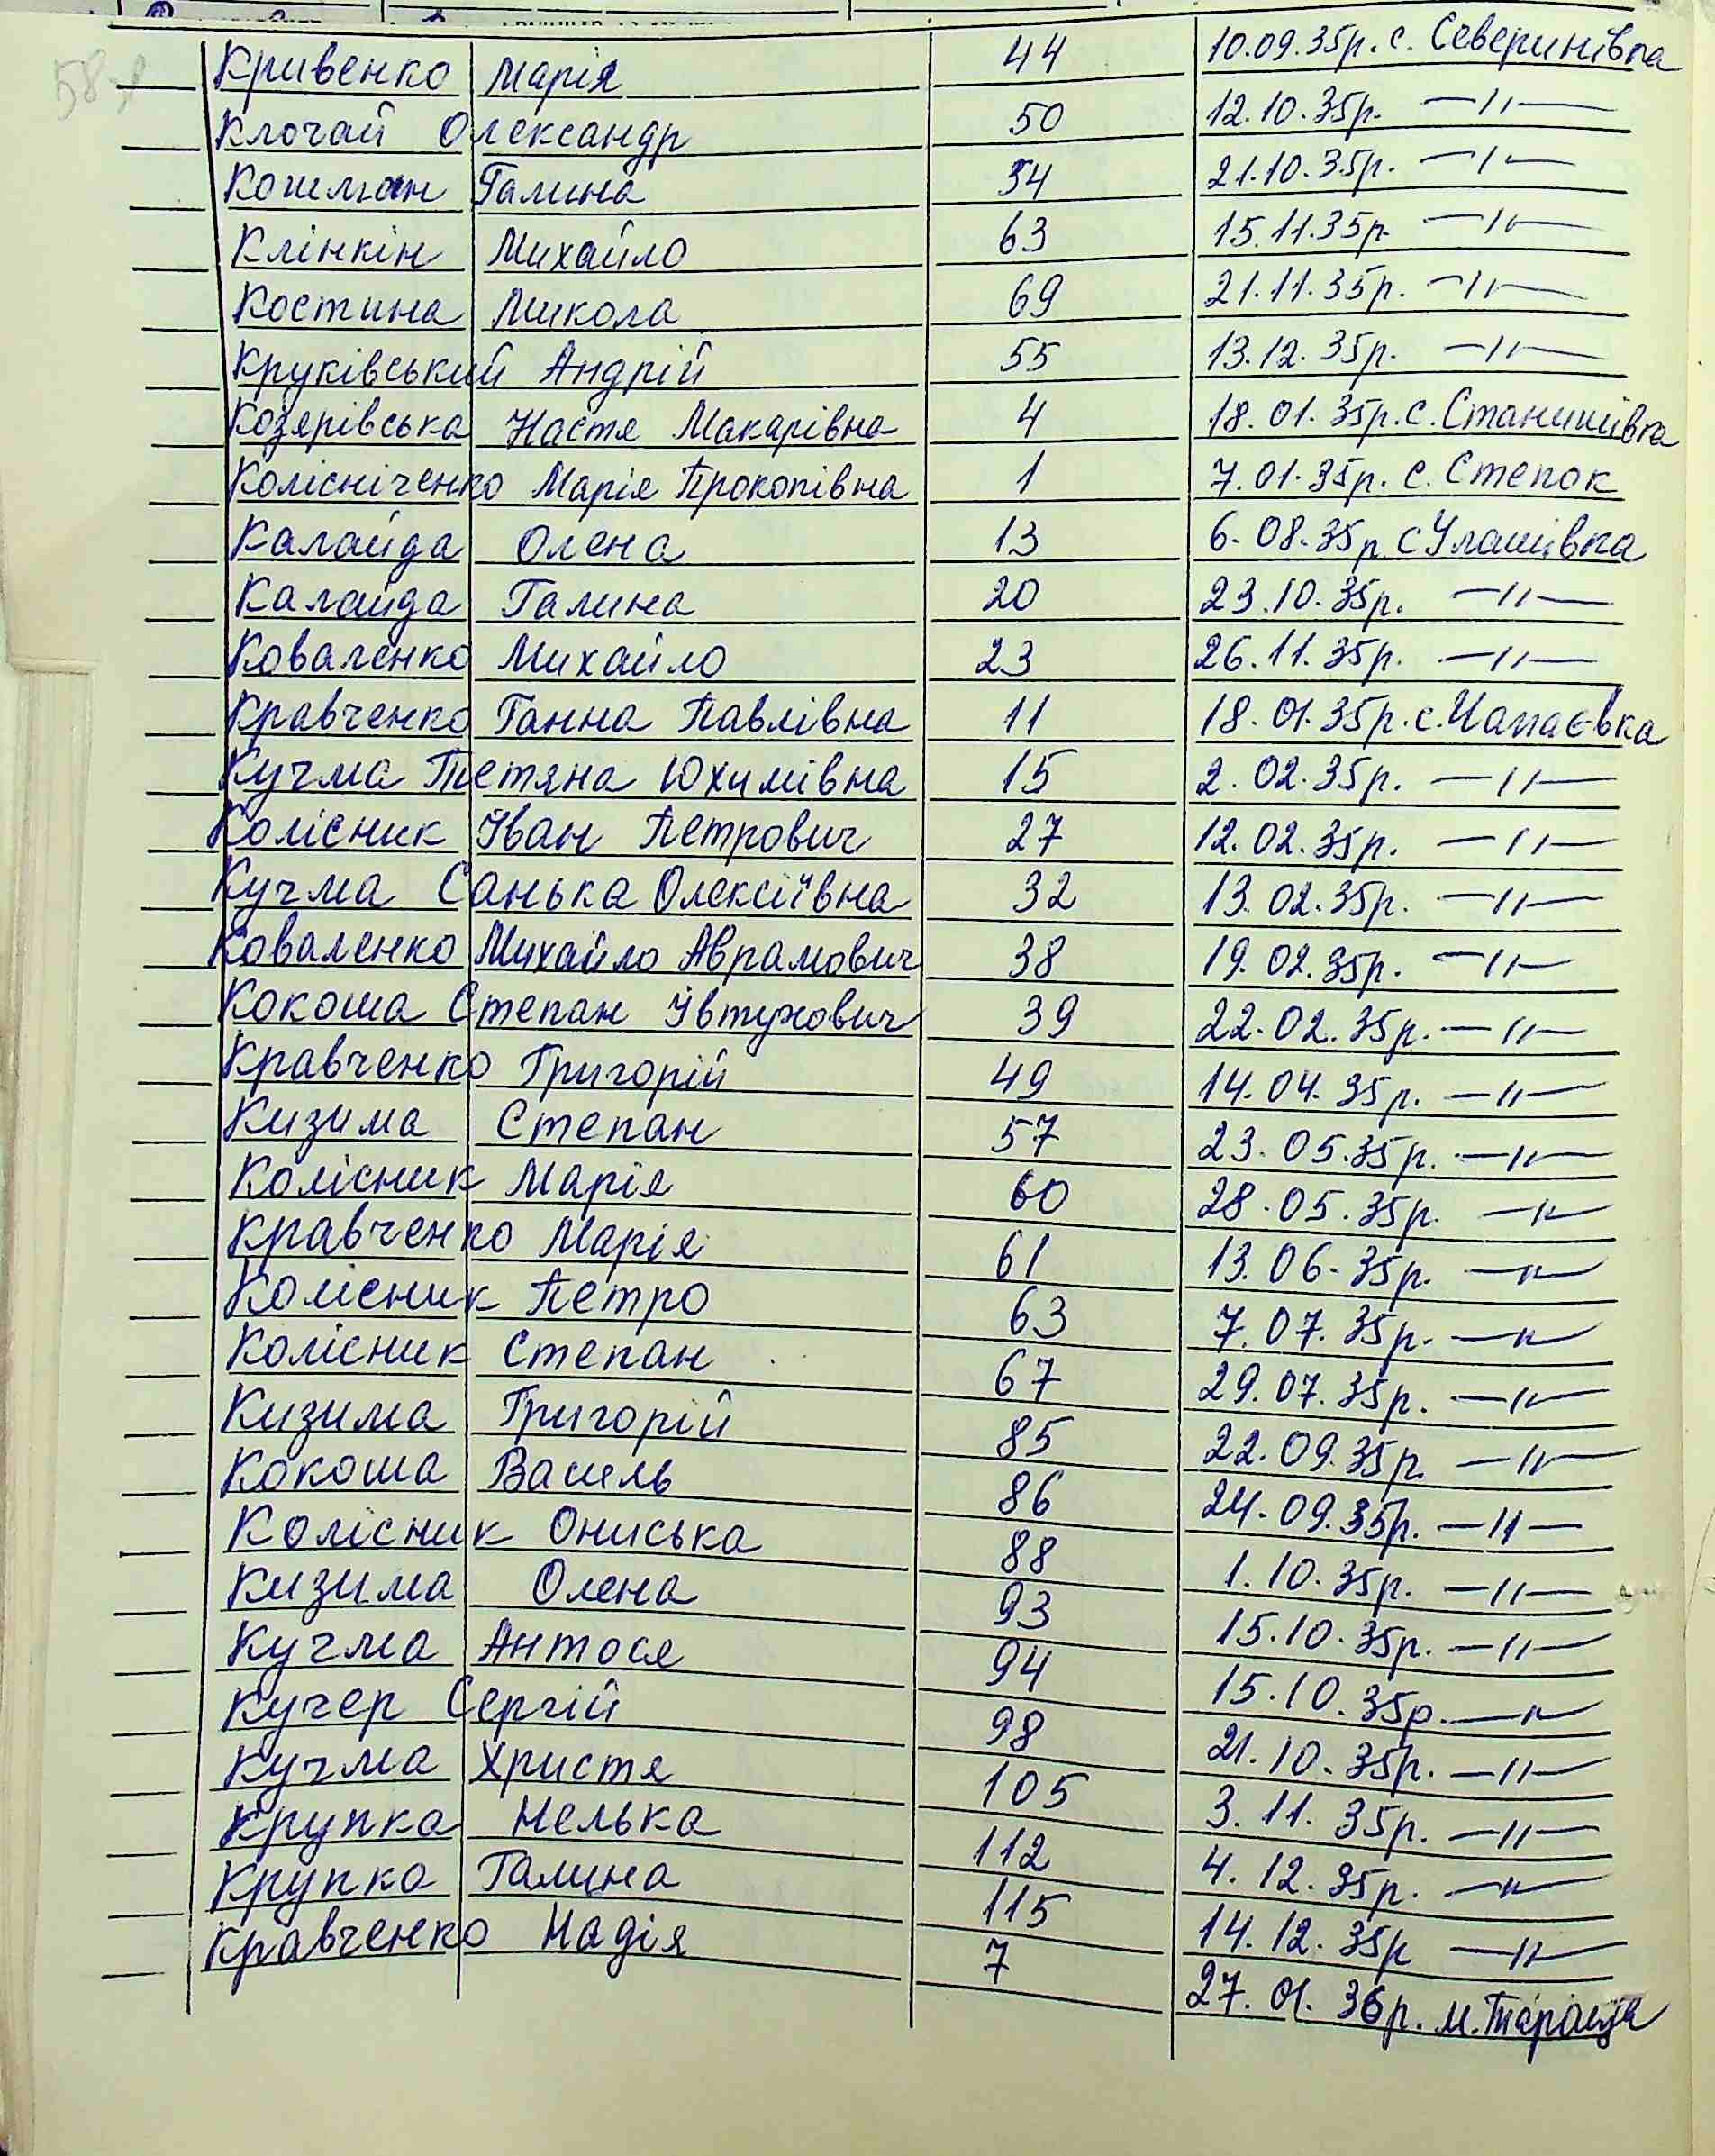 Кривенко Марія 44 10.09.35р. с. Северинівка
Клочай Олександр 50 12.10.35р. —"—
Кошман Галина 54 21.10.35р. —"—
Клінкін Михайло 63 15.11.35р. —"—
Костина Микола 69 21.11.35р. —"—
Круківський Андрій 55 13.12.35р. —"—
Козярівська Настя Макарівна 4 18.01.35р. с. Станишівка
Колісніченко Марія Прокопівна 1 7.01.35р. с. Степок
Калайда Олена 13 6.08.35р. с Улашівка
Калайда Галина 20 23.10.35р. —"—
Коваленко Михайло 23 26.11.35р. —"—
Кравченко Ганна Павлівна 11 18.01.35р. с. Чапаєвка
Кучма Тетяна Юхимівна 15 2.02.35р. —"—
Колісник Іван Петрович 27 12.02.35р. —"—
Кучма Санька Олексіївна 32 13.02.35р. —"—
Коваленко Михайло Аврамович 38 19.02.35р. —"—
Кокоша Степан Івтухович 39 22.02.35р. —"—
Кравченко Григорій 49 14.04.35р. —"—
Кизима Степан 57 23.05.35р. —"—
Колісник Марія 60 28.05.35р. —"—
Кравченко Марія 61 13.06.35р. —"—
Колісник Петро 63 7.07.35р. —"—
Колісник Степан 67 29.07.35р. —"—
Кизима Григорій 85 22.09.35р. —"—
Кокоша Василь 86 24.09.35р. —"—
Колісник Ониська 88 1.10.35р. —"—
Кизима Олена 93 15.10.35р. —"—
Кучма Антося 94 15.10.35р. —"—
Кучер Сергій 98 21.10.35р. —"—
Кучма Христя 105 3.11.35р. —"—
Крупка Нелька 112 4.12.35р. —"—
Крупка Галина 115 14.12.35р —"—
Кравченко Надія 7 27.01.36р. м. Тараща